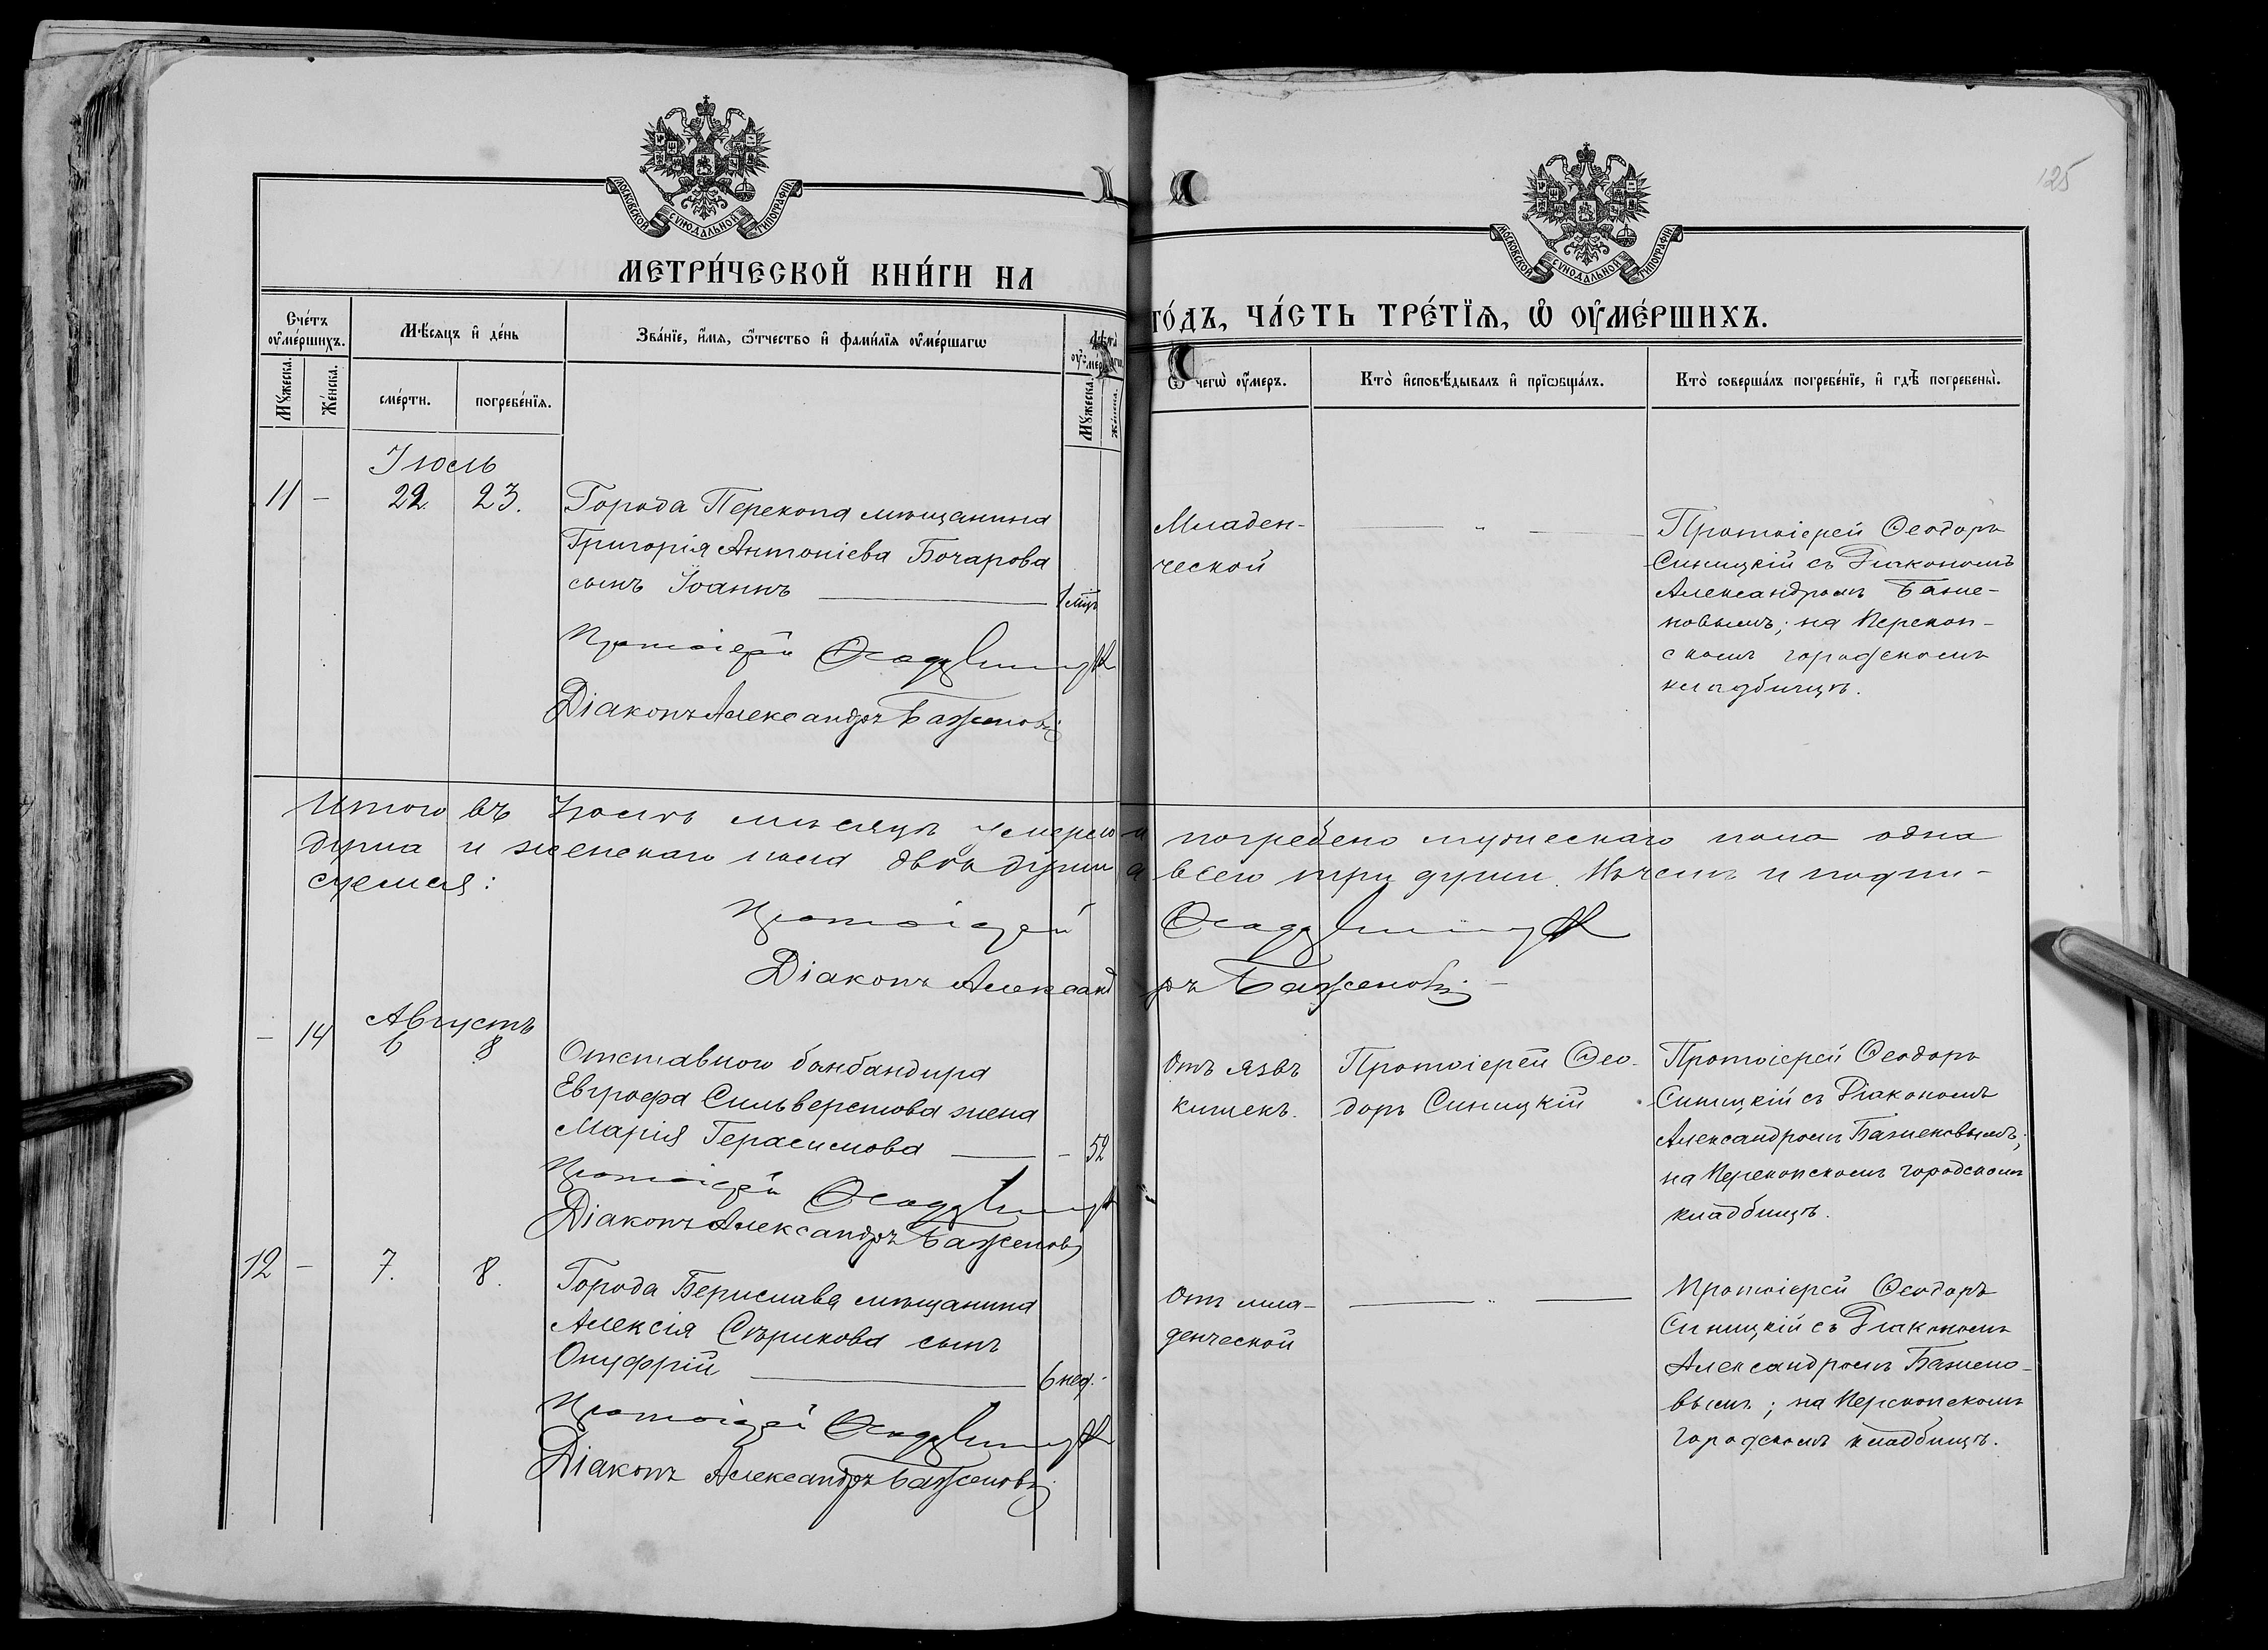 125
МОСКОВСКОЙ СѴНОДАЛЬНОЙ ТИПОГРАФІИ
МОСКОВСКОЙ СѴНОДАЛЬНОЙ ТИПОГРАФІИ
МЕТРИ́ЧЕСКОЙ КНИ́ГИ НА
ГО́ДЪ, ЧА́СТЬ ТРЕ́ТЇѦ, Ѡ҆ ОУ҆МЕ́РШИХЪ.
Сче́тъ оу҆ме́ршихъ.
Мѣ́сѧцъ и҆ де́нь
Зва́нїе, и҆́мѧ, ѻ҆́тчество и҆ фами́лїѧ оу҆ме́ршагѡ
Мꙋ́жеска.
Же́нска.
сме́рти.
погребе́нїѧ.
Мꙋ́жеска.
Же́нска.
Ѿ чегѡ̀ оу҆́меръ.
Кто̀ и҆сповѣ́дывалъ и҆ прїѡбща́лъ.
Кто̀ соверша́лъ погребе́нїе, и҆ гдѣ̀ погребены̀.
Іюль
11 - 22. 23.
Города Перекопа мѣщанина
Григорія Антоніева Бочарова
сынъ Іоаннъ — 1 мѣц.
Протоіерей Ѳеодоръ Синицкій
Діаконъ Александръ Баженовъ
Младен-
ческой
— „ —
Протоіерей Ѳеодоръ
Синицкій съ Діакономъ
Александромъ Баже-
новымъ; на Перекоп-
скомъ городскомъ
кладбищѣ.
Итого въ Іюлѣ мѣсяцѣ умерло и погребено мужескаго пола одна
душа и женскаго пола двѣ души а всего три души. Въ чемъ и подпи-
суемся:
Протоіерей Ѳеодоръ Синицкій
Діаконъ Александръ Баженовъ
Августъ
- 14 6 8
Отставного бомбандира
Евграфа Сильверстова жена
Марія Герасимова — - 52
Протоіерей Ѳеодоръ Синицкій
Діаконъ Александръ Баженовъ
Отъ язвъ
кишекъ.
Протоіерей Ѳео-
доръ Синицкій
Протоіерей Ѳеодоръ
Синицкій съ Діакономъ
Александромъ Баженовымъ;
на Перекопскомъ городскомъ
кладбищѣ.
12 - 7. 8.
Города Берислава мѣщанина
Алексія Сѣрикова сынъ
Онуфрій — 6 нед. -
Протоіерей Ѳеодоръ Синицкій
Діаконъ Александръ Баженовъ
Отъ мла-
денческой
— „ —
Протоіерей Ѳеодоръ
Синицкій съ Діакономъ
Александромъ Бажено-
вымъ; на Перекопскомъ
городскомъ кладбищѣ.